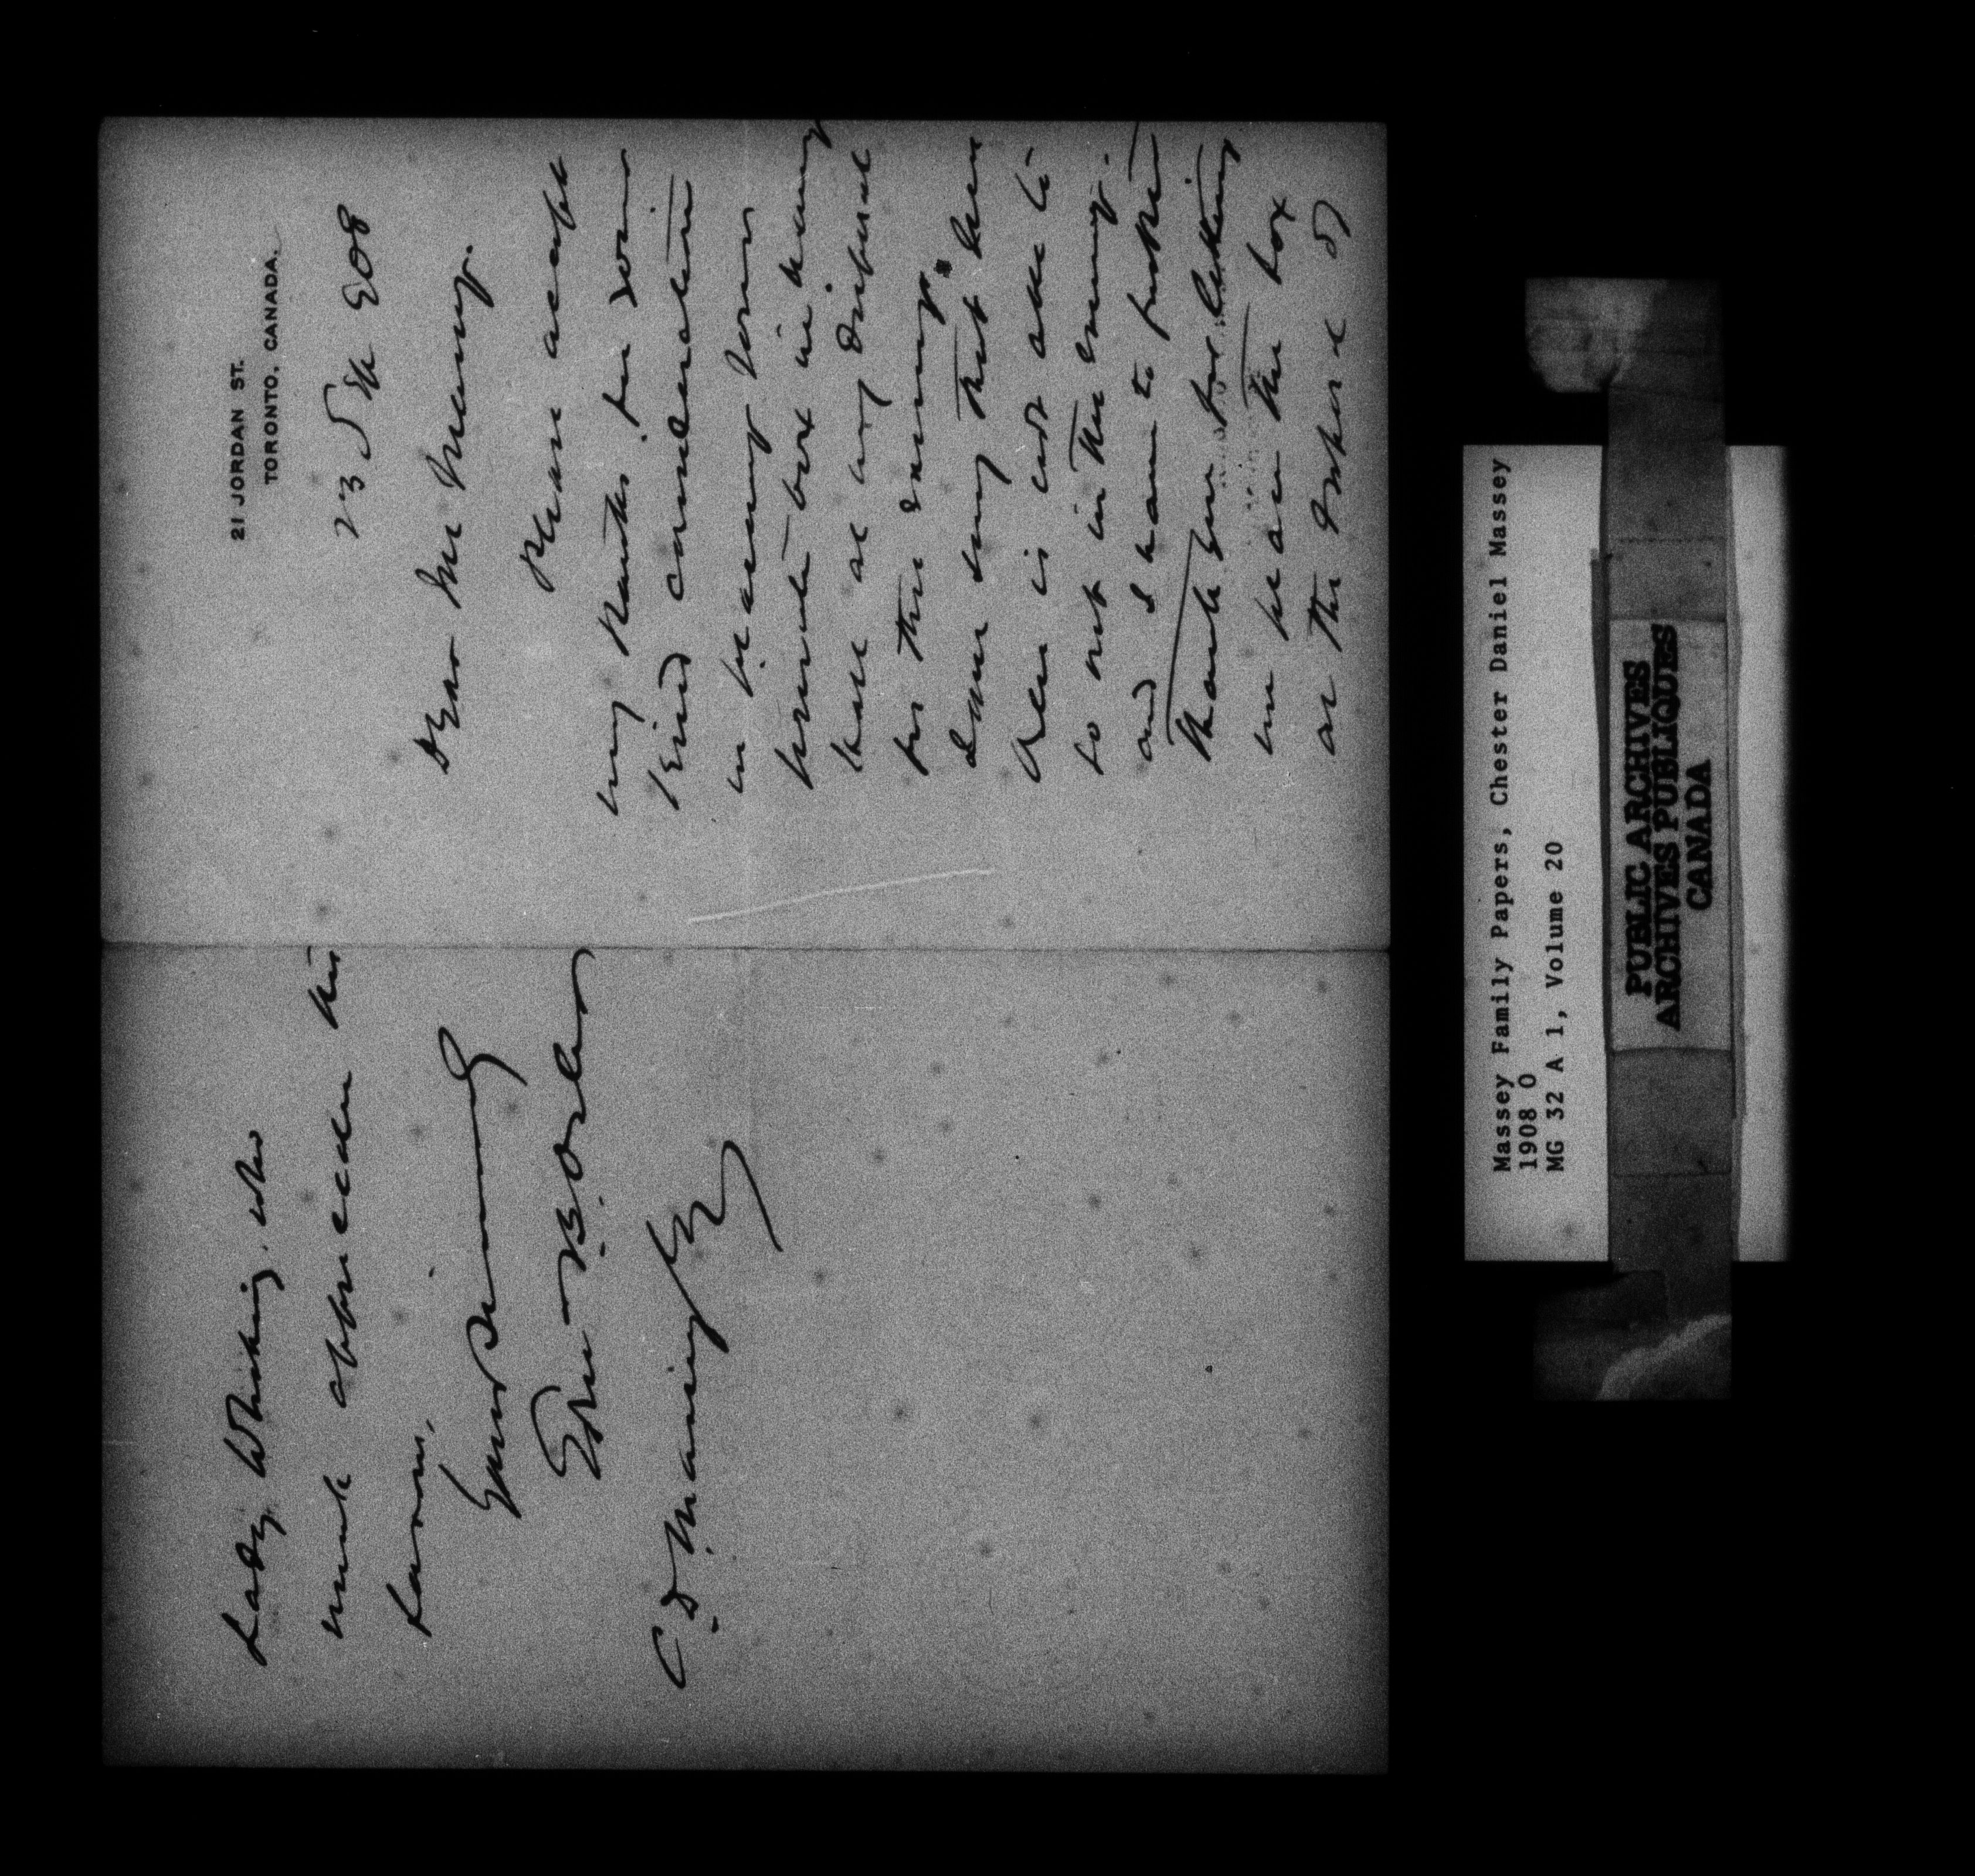 21 JORDAN ST.
TORONTO, CANADA.
23 908
Dear Mr Massey.
Please accept
my thanks for your
kind consideration
in placing your
private box in Massey
Hall at my disposal
for this evening.
I am sorry that
is not able to
go out in the evening.
and I have to further
thank you for letting
me place the box
at the disposal of
Lady Whitney. who
much appreciates this
favour.
Yours Sincerely
B. Osler
C. D. Massey Esq
Massey Family Papers, Chester Daniel Massey
1908 O
MG 32 A 1, Volume 20
PUBLIC ARCHIVES
ARCHIVES PUBLIQUES
CANADA